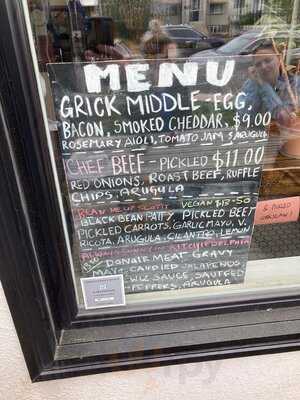 MENU
GRICK MIDDLE-EGG,
BACON, SMOKED CHEDDAR, $9.00
ROSEMARY AIOLI, TOMATO JAM & ARUGULA
CHEF BEEF - PICKLED $11.00
RED ONIONS, ROAST BEEF, RUFFLE
CHIPS, ARUGULA
BEAM ME UP SCOTTY VEGAN $12.50
BLACK BEAN PATTY, PICKLED BEET
PICKLED CARROTS, GARLIC MAYO, V.
RICOTA, ARUGULA, CILANTRO, LEMON
ALWAYS SUNNY IN KITCHIDELPHIA
DONAIR MEAT GRAVY
MAYO, CANDIED JALAPENOS
WIZ SAUCE, SAUTEED
PEPPERS, ARUGULA